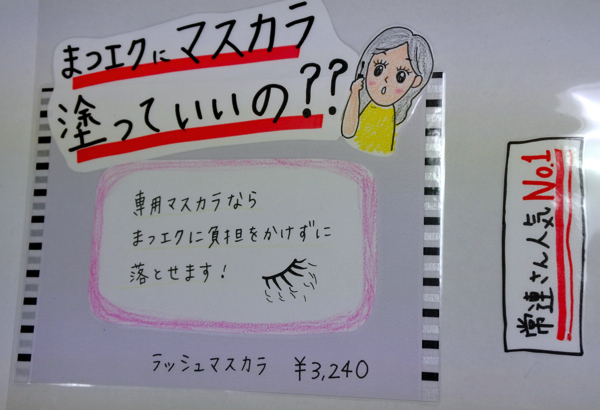 まつエクにマスカラ
塗っていいの??
専用マスカラなら
まつエクに負担をかけずに
落とせます!
ラッシュマスカラ ¥3,240
常連さん人気No.1